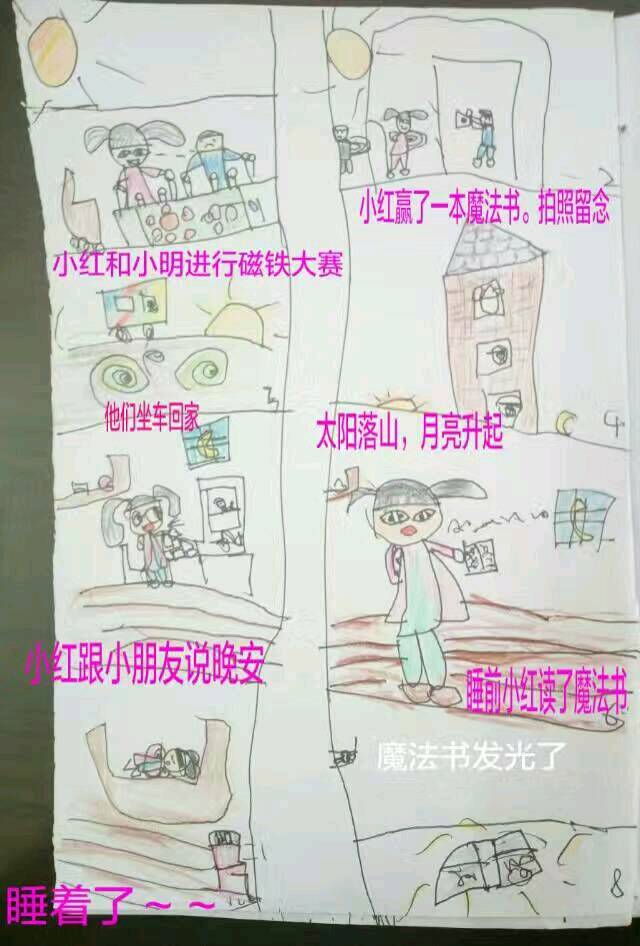 小红和小明进行磁铁大赛
小红赢了一本魔法书。拍照留念
他们坐车回家
3
太阳落山，月亮升起
4
小红跟小朋友说晚安
睡前小红读了魔法书
6
睡着了～～
魔法书发光了
8